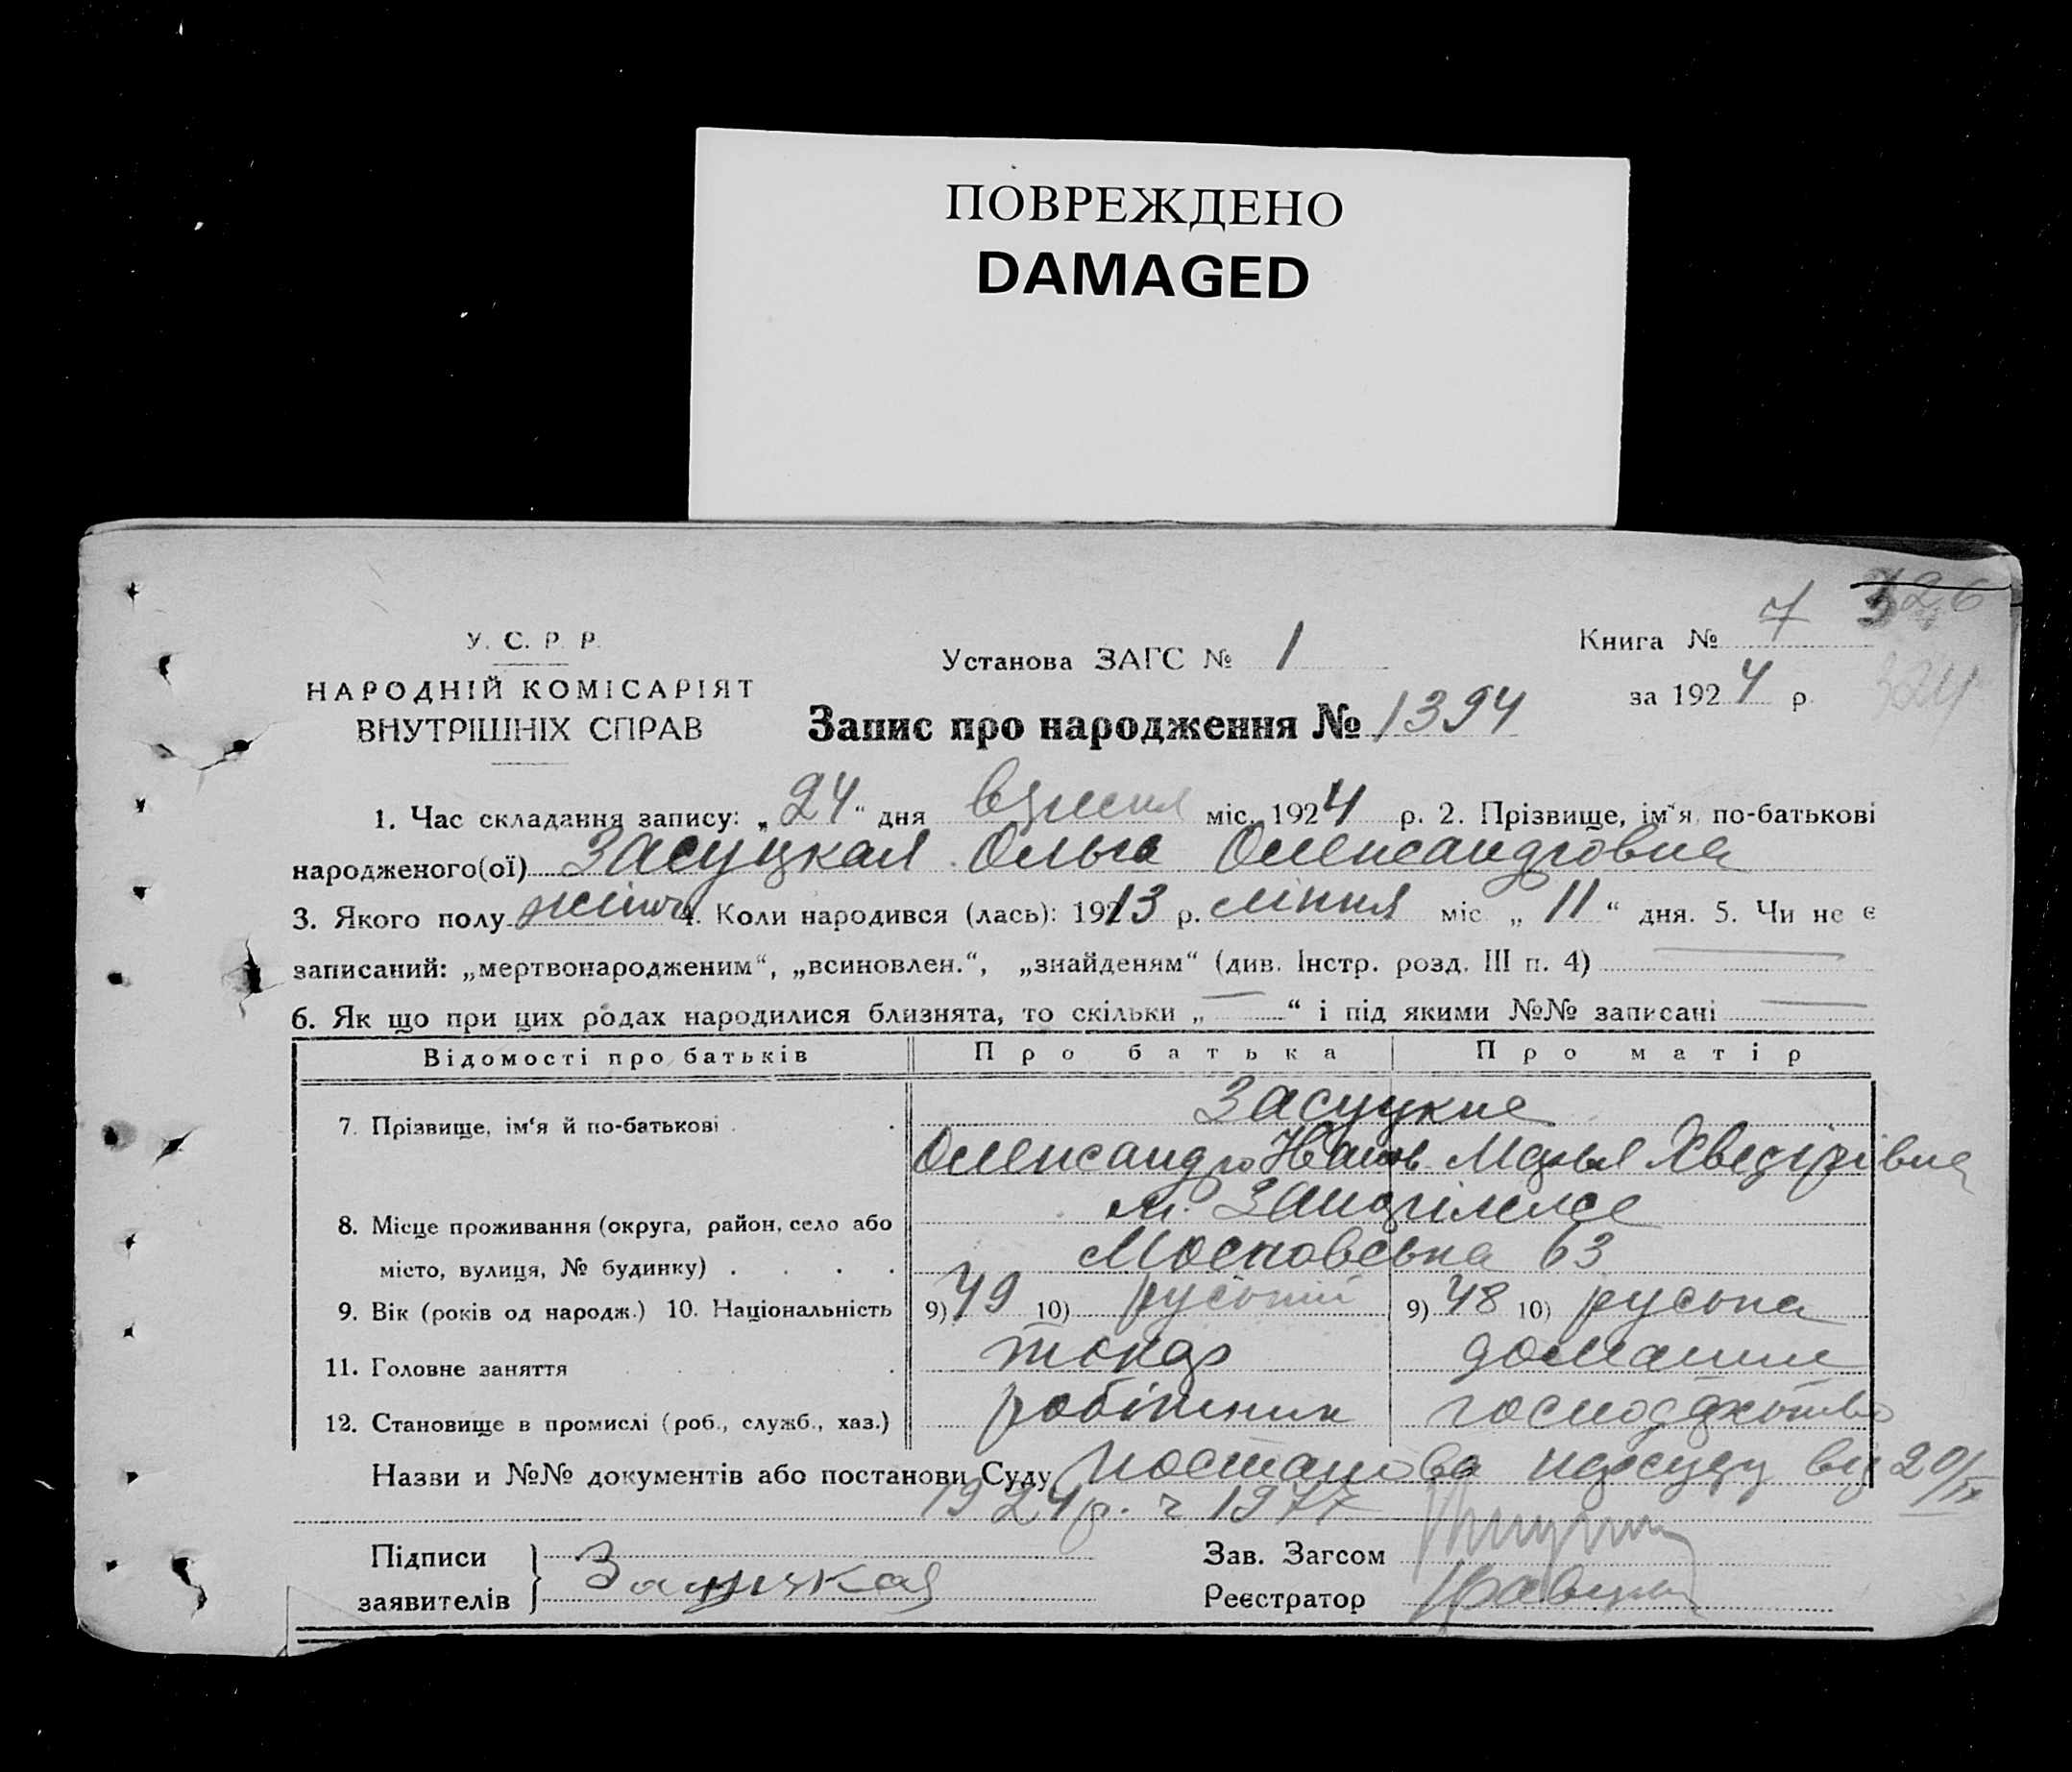 ПОВРЕЖДЕНО
DAMAGED
326
324
У. С. Р. Р.
НАРОДНІЙ КОМІСАРІЯТ
ВНУТРІШНІХ СПРАВ
Установа ЗАГС № 1
Книга № 7
за 1924 р.
Запис про народження № 1394
1. Час складання запису: „24“ дня вересня міс. 1924 р. 2. Прізвище, ім‘я, по-батькові
народженого(ої) Засуцкая Ольга Олександровна
3. Якого полу жіноч 4. Коли народився (лась): 1913 р. ліпня міс „11“ дня. 5. Чи не є
записаний: „мертвонародженим“, „всиновлен.“, „знайденям“ (див. Інстр. розд. III п. 4) —
6. Як що при цих родах народилися близнята, то скільки „—“ і під якими №№ записані —
Відомості про батьків Про батька Про матір
7. Прізвище, ім‘я й по-батькові Засуцкие
Олександр Иванов Марья Хведірівна
8. Місце проживання (округа, район, село або м. Запоріжже
місто, вулиця, № будинку) Московська 63
9. Вік (років од народж.) 10. Національність 9) 49 10) руський 9) 48 10) руська
11. Головне заняття токар домашнє
12. Становище в промислі (роб., служб., хаз.) робітник господарство
Назви и №№ документів або постанови Суду Постанова нарсуду від 20/IX
1924 р. ч 1977
Підписи
заявителів
Засуцкая
Зав. Загсом
Реєстратор